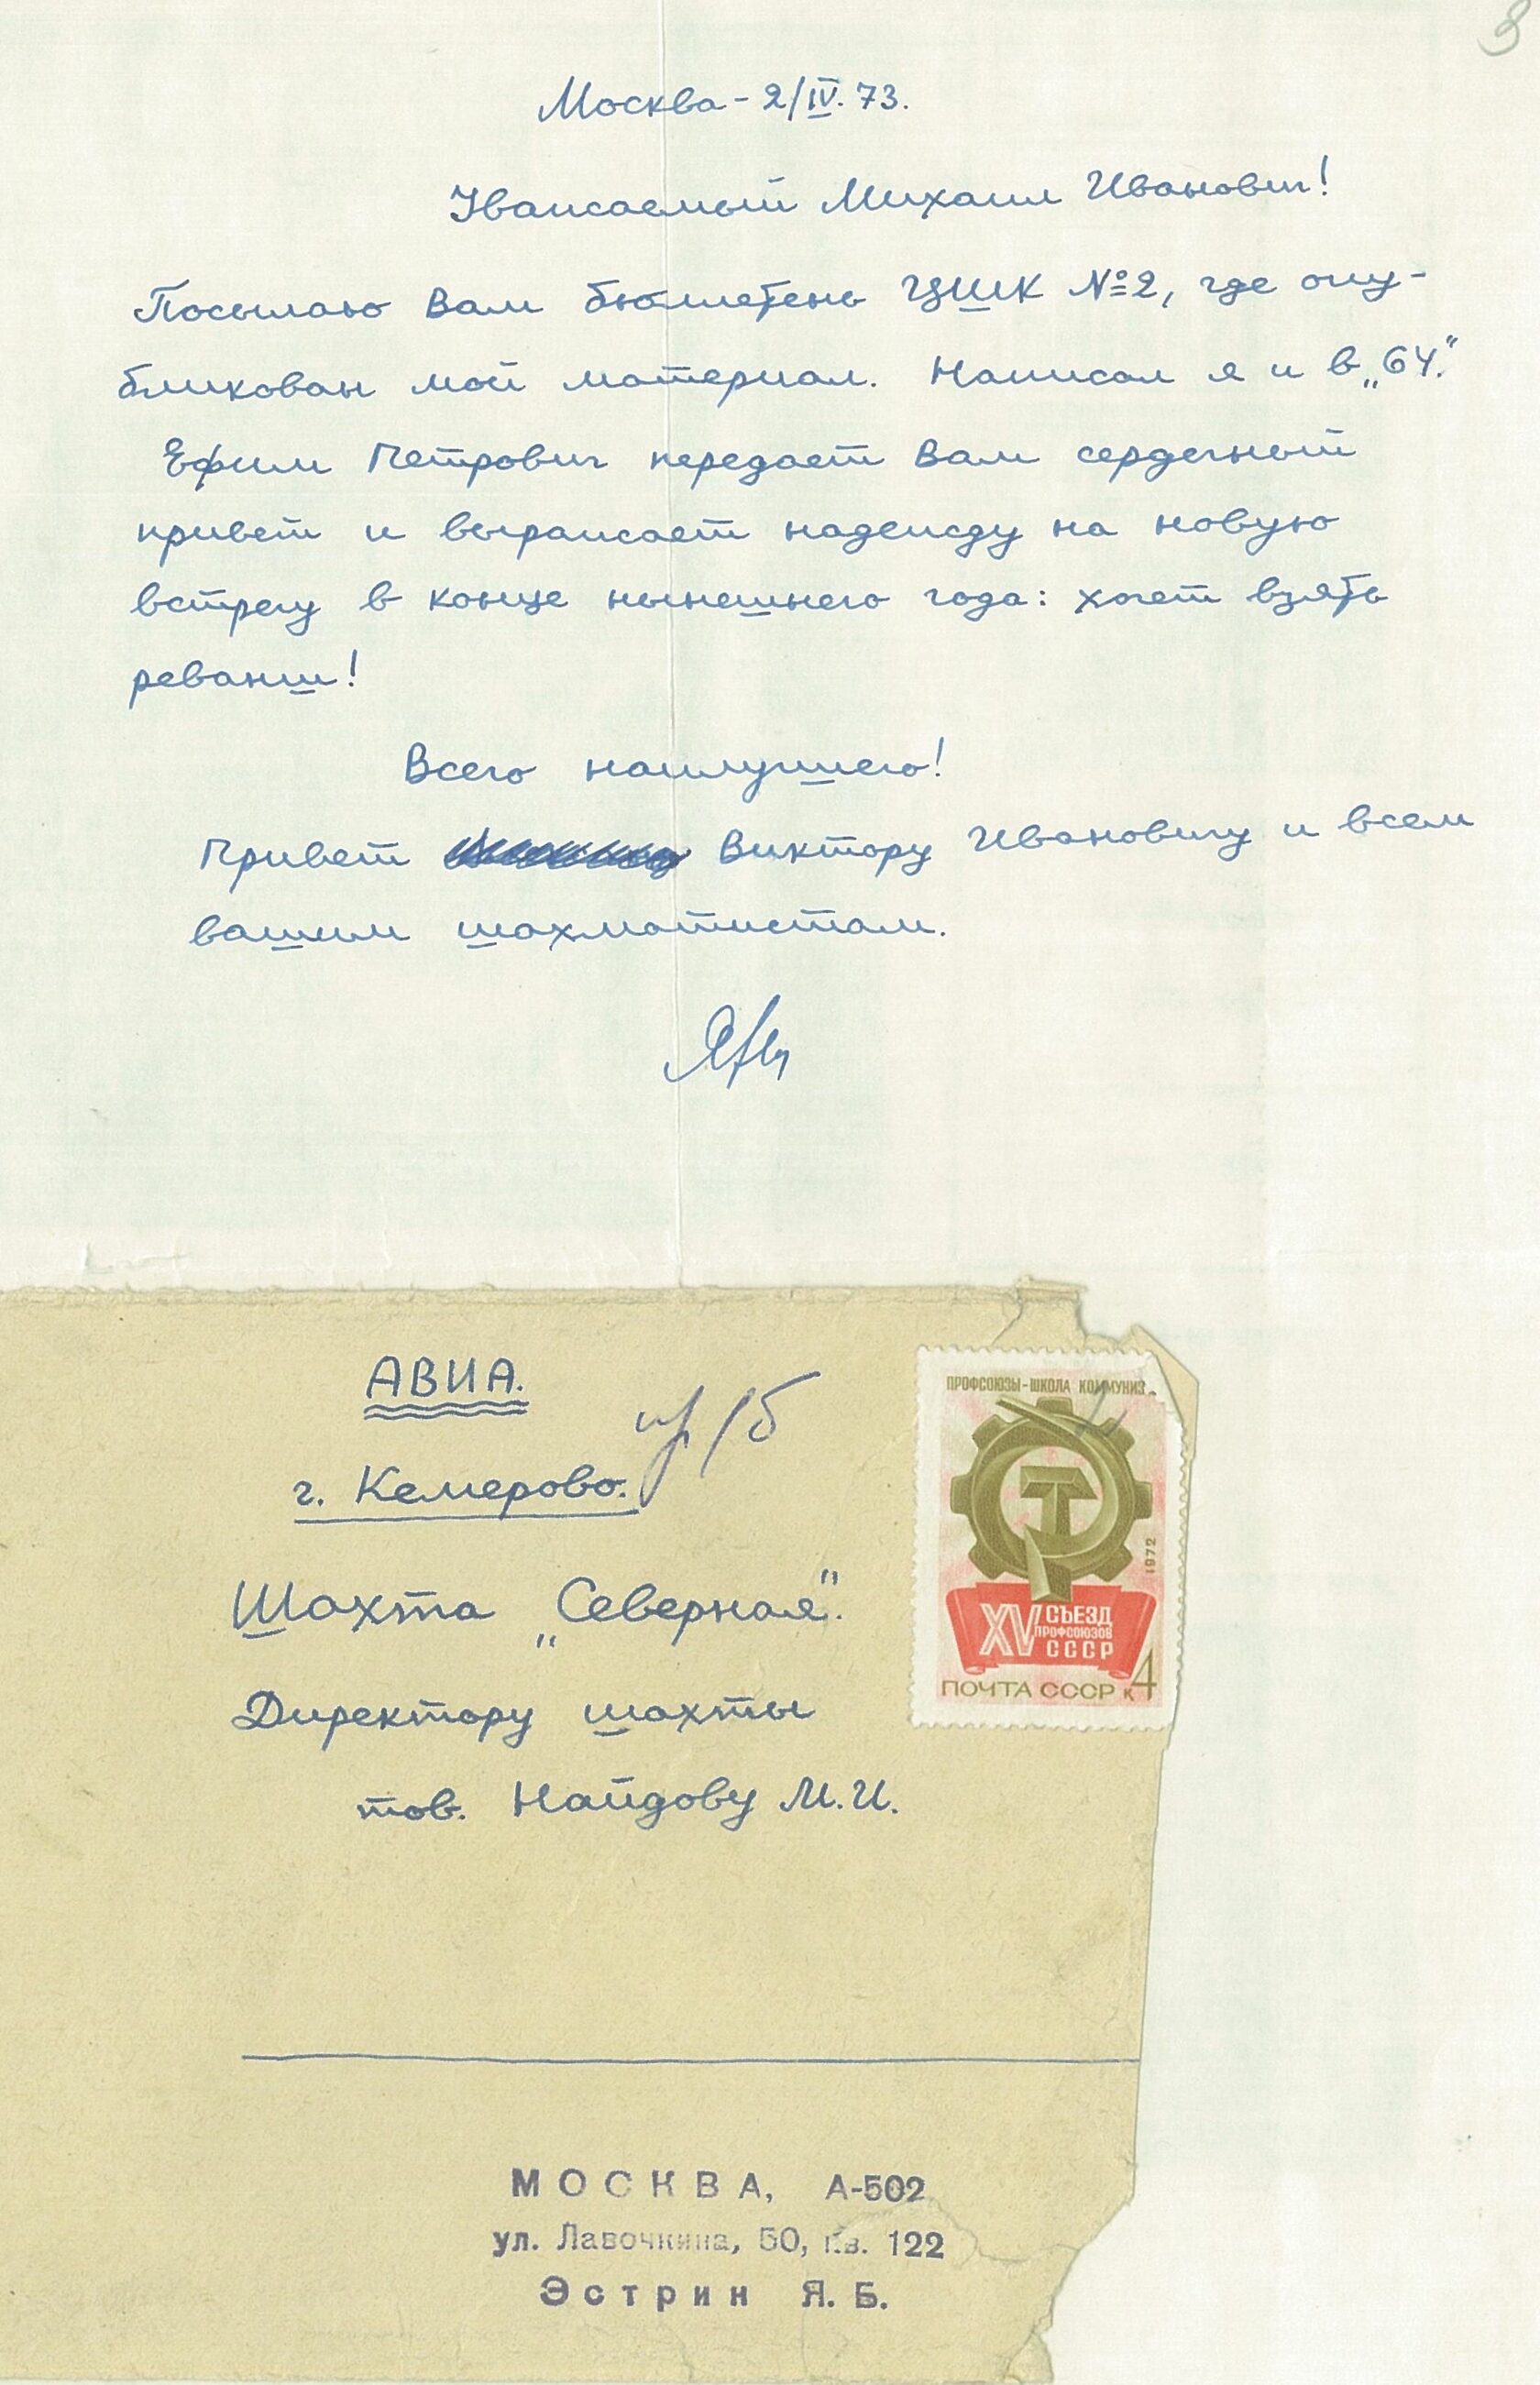 3
Москва - 2/IV. 73.
Уважаемый Михаил Иванович!
Посылаю Вам бюллетень ЦШК №2, где опу-
бликован мой материал. Написал я и в „64."
Ефим Петрович передает Вам сердечный
привет и выражает надежду на новую
встречу в конце нынешнего года: хочет взять
реванш!
Всего наилучшего!
Привет Виктору Ивановичу и всем
вашим шахматистам.
АВИА.
г. Кемерово.
Шахта „Северная".
Директору шахты
тов. Найдову М.И.
ПРОФСОЮЗЫ-ШКОЛА КОММУНИЗ
1972
XV СЪЕЗД
ПРОФСОЮЗОВ
СССР
ПОЧТА СССР к4
МОСКВА, А-502
ул. Лавочкина, 50, кв. 122
Эстрин Я. Б.